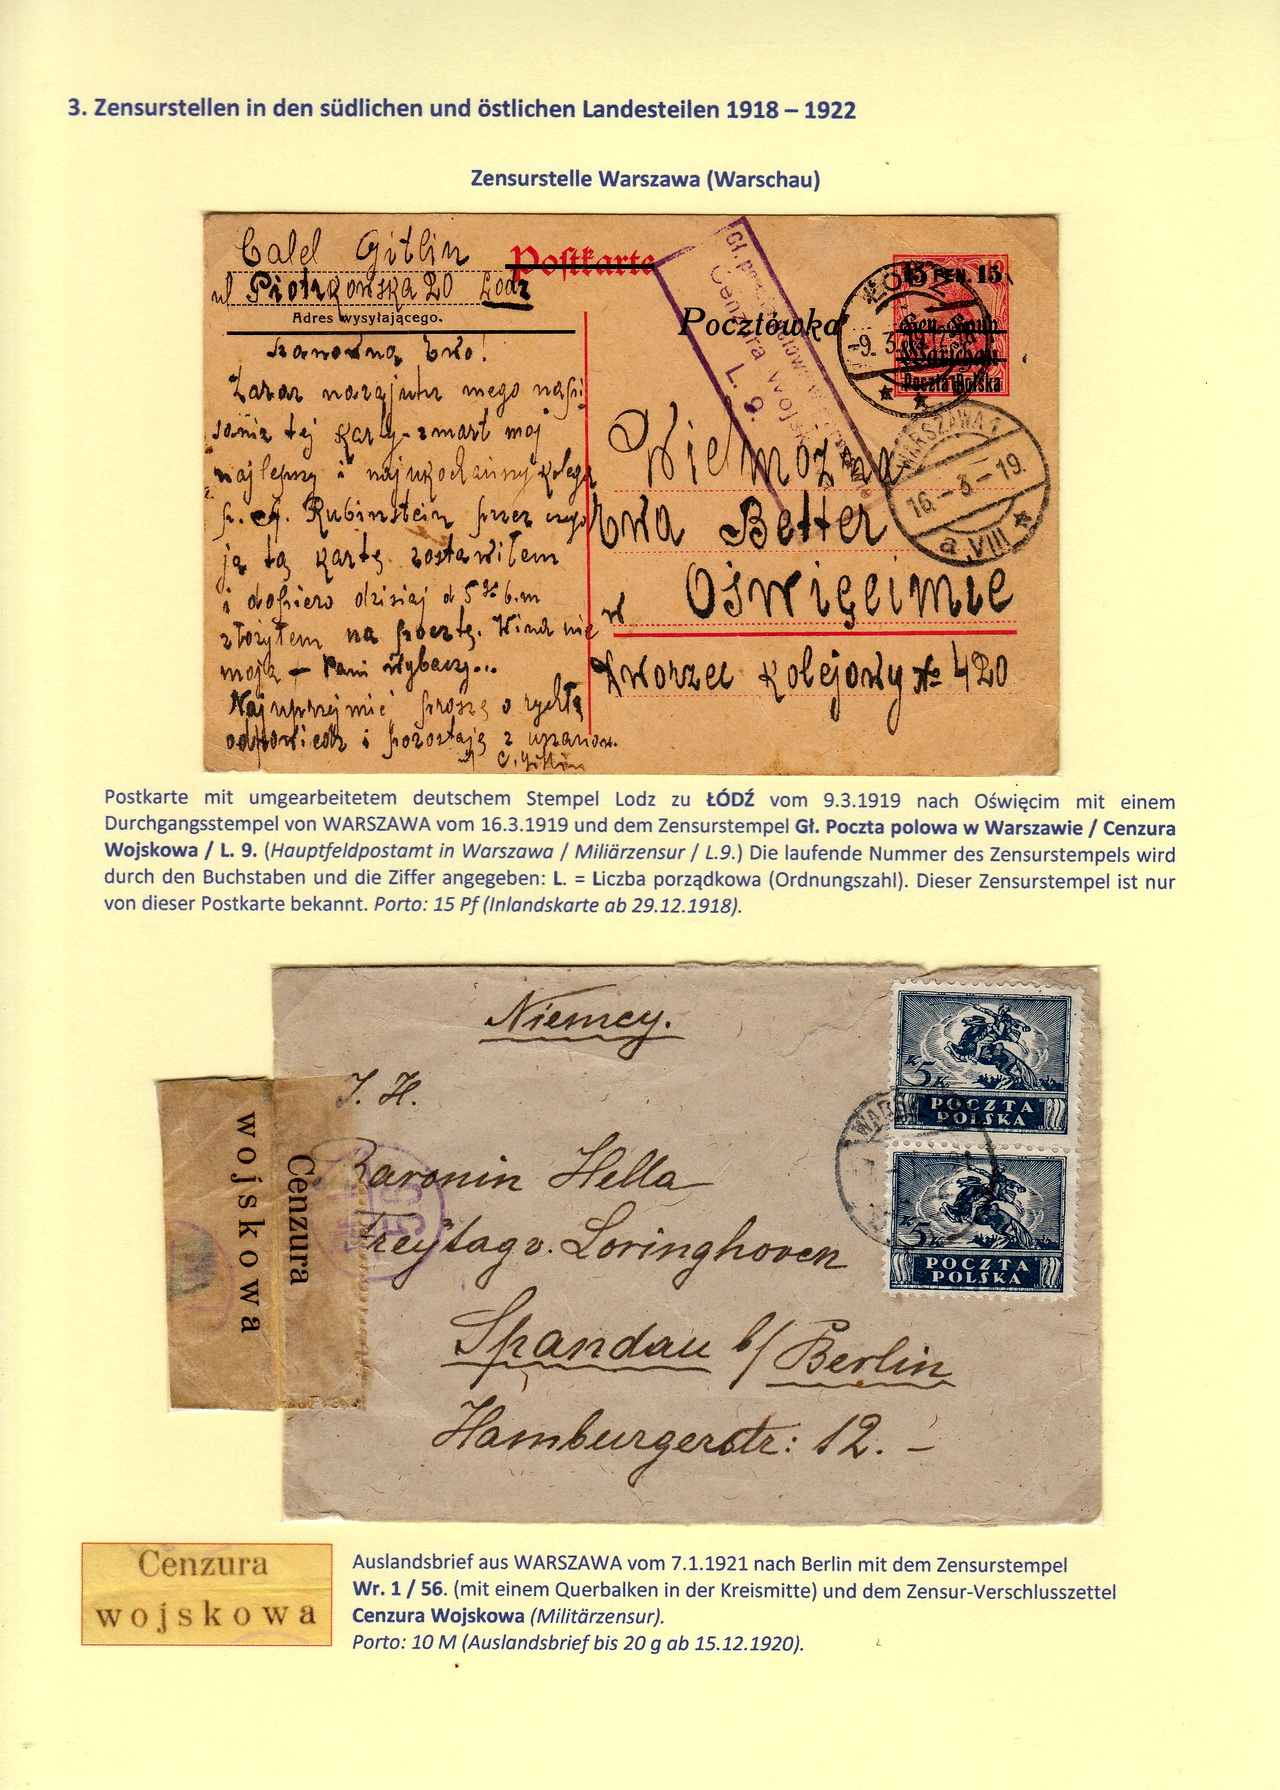 3. Zensurstellen in den südlichen und östlichen Landesteilen 1918 – 1922
Zensurstelle Warszawa (Warschau)
Calel Gitlin
ul Piotrkowska 20 Łódz
Adres wysyłającego.
Szanowna Ewo!
Zaraz nazajutrz mego napi
sania tej karty zmarł mój
najlepszy i najukochańszy kolega
ś.p. Rubinstein przez czego
ja tą kartę zostawiłem
i dopiero dzisiaj d 5 b.m
złożyłem na pocztę. Wina nie
moja – Pani wybaczy...
Najuprzejmie proszę o rychłą
odpowiedź i pozostaję z uszanow.
C. Gitlin
Postkarte
Pocztówka
Gł. poczta polowa w Warszawie
Cenzura Wojsk
L. 9.
15 FEN. 15
Gen.-Gouv.
Warschau
Poczta Polska
ŁÓDŹ
9. 3
WARSZAWA 1
16 - 3 - 19.
a VIII
Wielmożna
Ewa Better
w Oświęcimie
Dworzec kolejowy № 420
Postkarte mit umgearbeitetem deutschem Stempel Lodz zu ŁÓDŹ vom 9.3.1919 nach Oświęcim mit einem
Durchgangsstempel von WARSZAWA vom 16.3.1919 und dem Zensurstempel Gł. Poczta polowa w Warszawie / Cenzura
Wojskowa / L. 9. (Hauptfeldpostamt in Warszawa / Miliärzensur / L.9.) Die laufende Nummer des Zensurstempels wird
durch den Buchstaben und die Ziffer angegeben: L. = Liczba porządkowa (Ordnungszahl). Dieser Zensurstempel ist nur
von dieser Postkarte bekannt. Porto: 15 Pf (Inlandskarte ab 29.12.1918).
Niemcy.
J. H.
Baronin Hella
Freytag v. Loringhoven
Spandau b/ Berlin
Hamburgerstr: 12. –
5 K
POCZTA
POLSKA
5 K
POCZTA
POLSKA
Cenzura
wojskowa
56
Cenzura
wojskowa
Auslandsbrief aus WARSZAWA vom 7.1.1921 nach Berlin mit dem Zensurstempel
Wr. 1 / 56. (mit einem Querbalken in der Kreismitte) und dem Zensur-Verschlusszettel
Cenzura Wojskowa (Militärzensur).
Porto: 10 M (Auslandsbrief bis 20 g ab 15.12.1920).